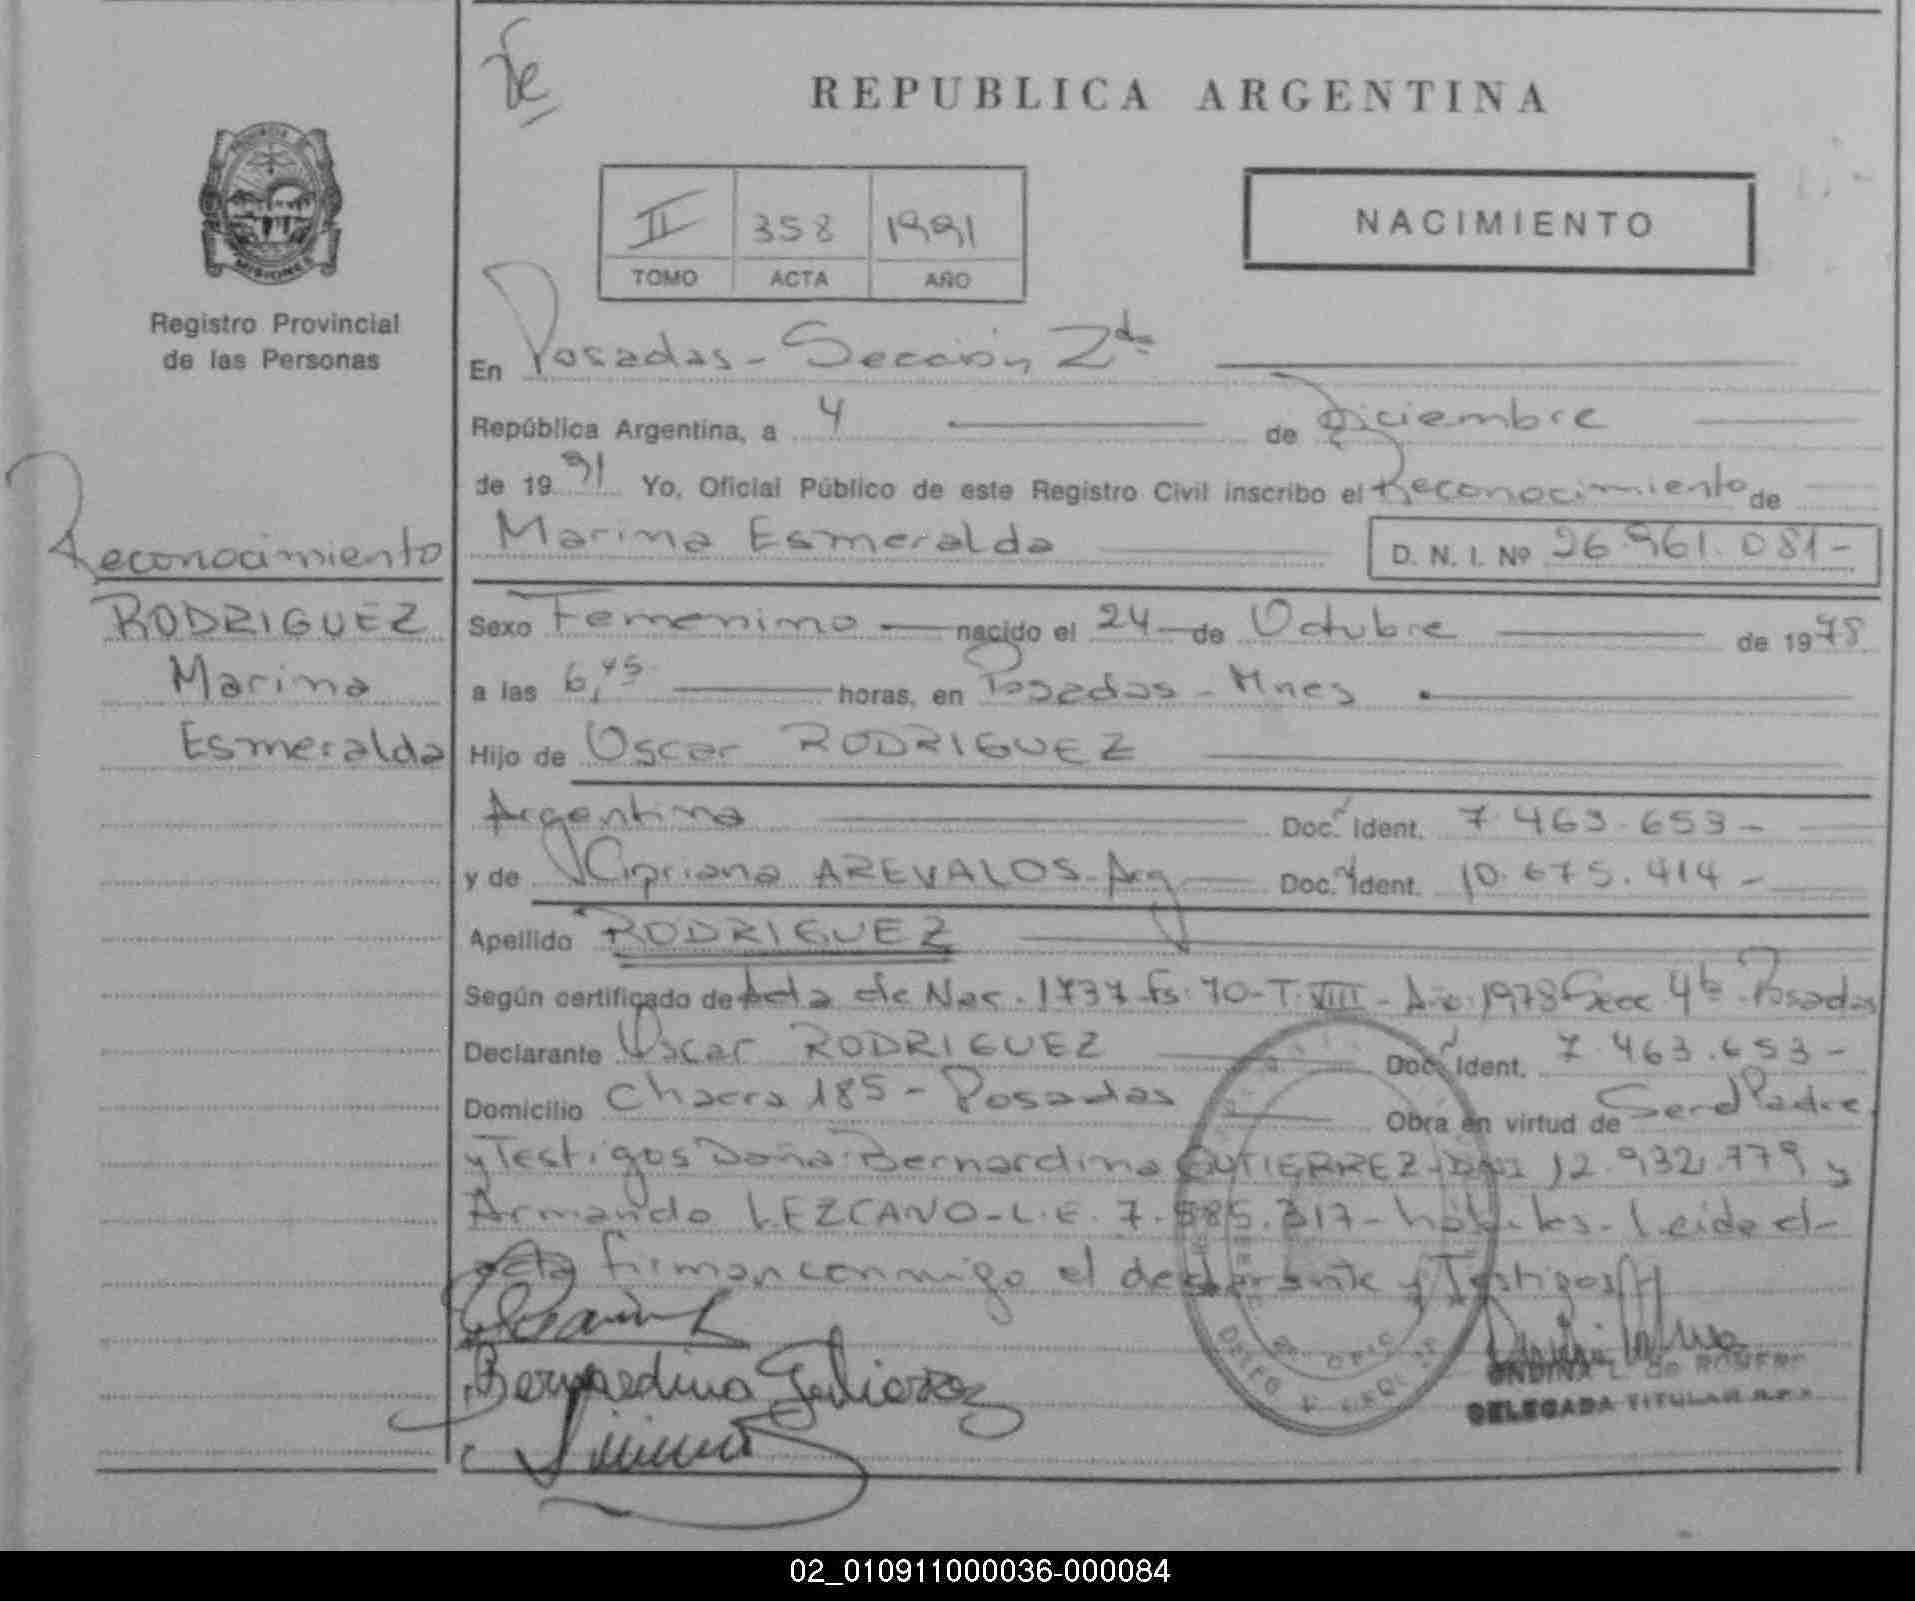 REPUBLICA ARGENTINA
MISIONES
Registro Provincial
de las Personas
II 358 1991
TOMO ACTA AÑO
NACIMIENTO
En Posadas - Sección 2da
República Argentina, a 4 de Diciembre
de 1991 Yo, Oficial Público de este Registro Civil inscribo el Reconocimiento de
Marina Esmeralda D. N. I. Nº 26.961.081-
Reconocimiento
RODRIGUEZ
Marina
Esmeralda
Sexo Femenino nacido el 24 de Octubre de 1978
a las 6,45 horas, en Posadas - Mnes
Hijo de Oscar RODRIGUEZ
Argentina Doc. Ident. 7.463.653-
y de Cipriana AREVALOS - Arg Doc. Ident. 10.675.414-
Apellido RODRIGUEZ
Según certificado de Acta de Nac. 1737 - Fs: 70 - T. VIII - Año 1978 Secc 4ta Posadas
Declarante Oscar RODRIGUEZ Doc. Ident. 7.463.653-
Domicilio Chacra 185 - Posadas Obra en virtud de Ser el Padre
y Testigos Doña: Bernardina GUTIERREZ - DNI 12.932.779 y
Armando LEZCANO - L.E. 7.585.317 - hábiles - Leida el
acta firman conmigo el declarante y Testigos
Bernardina Gutierrez
ONDINA L. de ROMERO
DELEGADA TITULAR R.P.P.
02_010911000036-000084